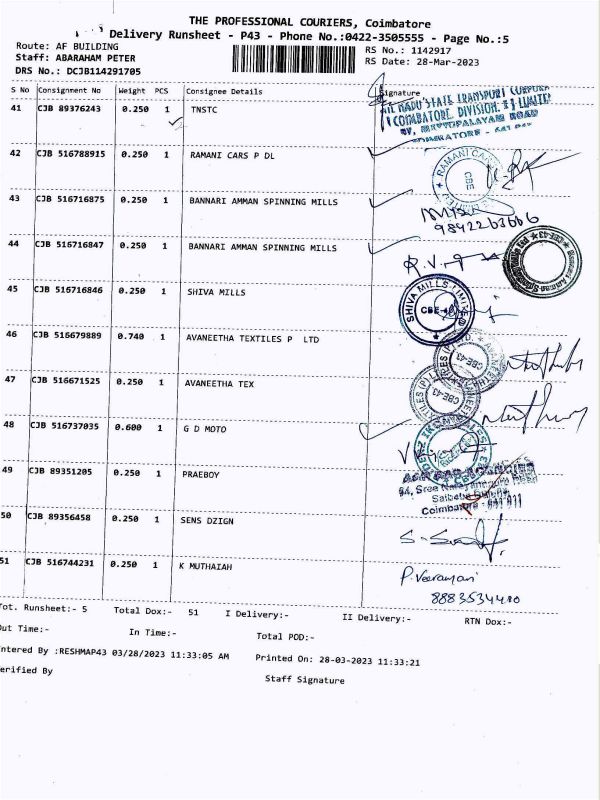 THE PROFESSIONAL COURIERS, Coimbatore
Delivery Runsheet - P43 - Phone No.:0422-3505555 - Page No.:5
Route: AF BUILDING
RS No.: 1142917
Staff: ABARAHAM PETER
RS Date: 28-Mar-2023
DRS No.: DCJB114291705
S No Consignment No Weight PCS Consignee Details Signature
41 CJB 89376243 0.250 1 TNSTC
42 CJB 516788915 0.250 1 RAMANI CARS P DL
43 CJB 516716875 0.250 1 BANNARI AMMAN SPINNING MILLS
9842263666
44 CJB 516716847 0.250 1 BANNARI AMMAN SPINNING MILLS
45 CJB 516716846 0.250 1 SHIVA MILLS
SHIVA MILLS LIMITED
46 CJB 516679889 0.740 1 AVANEETHA TEXTILES P LTD
CBE-43
47 CJB 516671525 0.250 1 AVANEETHA TEX
CBE-43
48 CJB 516737035 0.600 1 G D MOTO
49 CJB 89351205 0.250 1 PRAEBOY
50 CJB 89356458 0.250 1 SENS DZIGN
51 CJB 516744231 0.250 1 K MUTHAIAH
P. Veeramani
8883534410
Tot. Runsheet:- 5 Total Dox:- 51 I Delivery:- II Delivery:- RTN Dox:-
Out Time:- In Time:- Total POD:-
ntered By :RESHMAP43 03/28/2023 11:33:05 AM Printed On: 28-03-2023 11:33:21
erified By Staff Signature